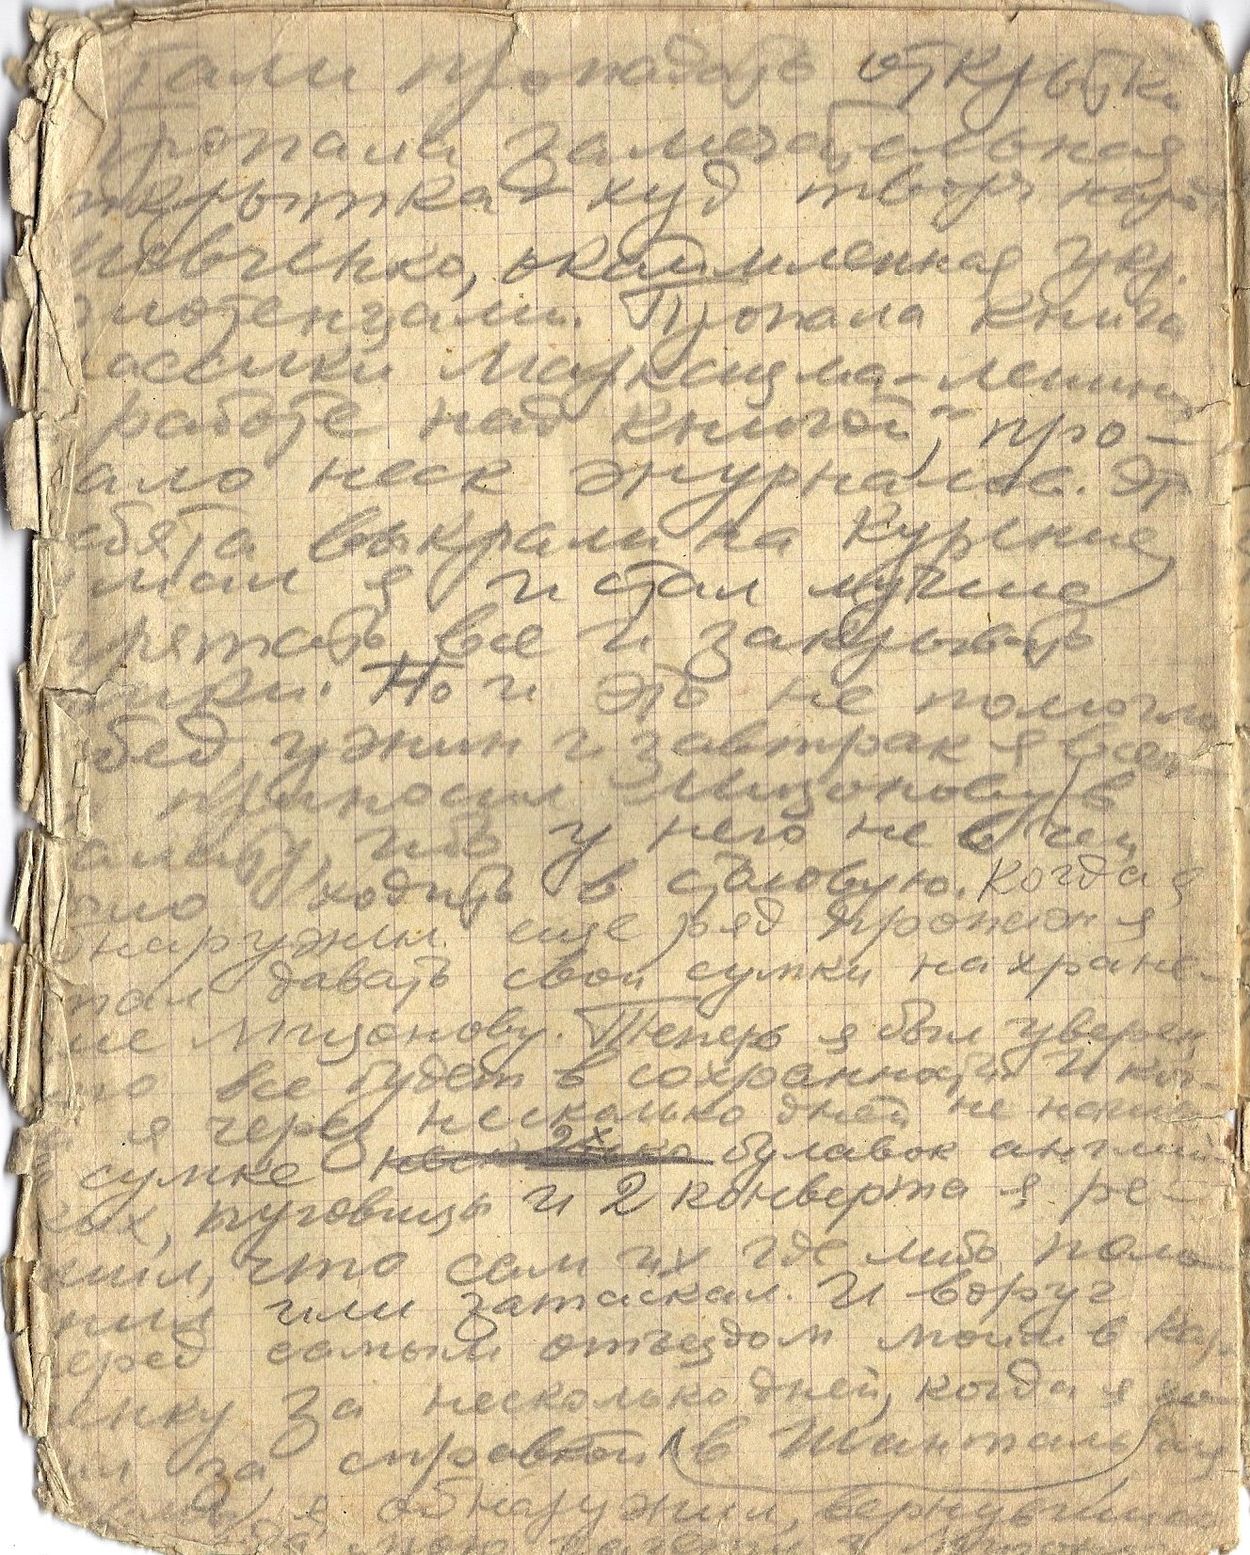 тали пропадать открытки
пропала замечательная
открытка худ твор нар
Шевченко, окаймленная укр.
полотенцами. Пропала книга
Классики Марксизма-ленини
работе над книгой", про-
пало неск журналов. Эт
ебята выкрали на курение
умал я и стал лучше
прятать все и закрывать
ики. Но и это не помогло
бед, ужин и завтрак я всег
приносил Мизонову в
алату, ибо у него не в чем
ыло ходить в столовую. Когда я
бнаружил еще ряд пропаж я
тал давать свои сумки на хране-
ие Мизонову. Теперь я был уверен
то все будет в сохранности И ког-
а я через несколько дней не нашел
в сумке 2х булавок англий-
ких, пуговицы и 2 конверта я ре-
шил, что сам их где либо поло-
жил или затаскал. И вдруг
еред самым отъездом моим в Кар
инку за несколько дней, когда я хо-
ил за справкой в Шанталы
я обнаружил, вернувшись